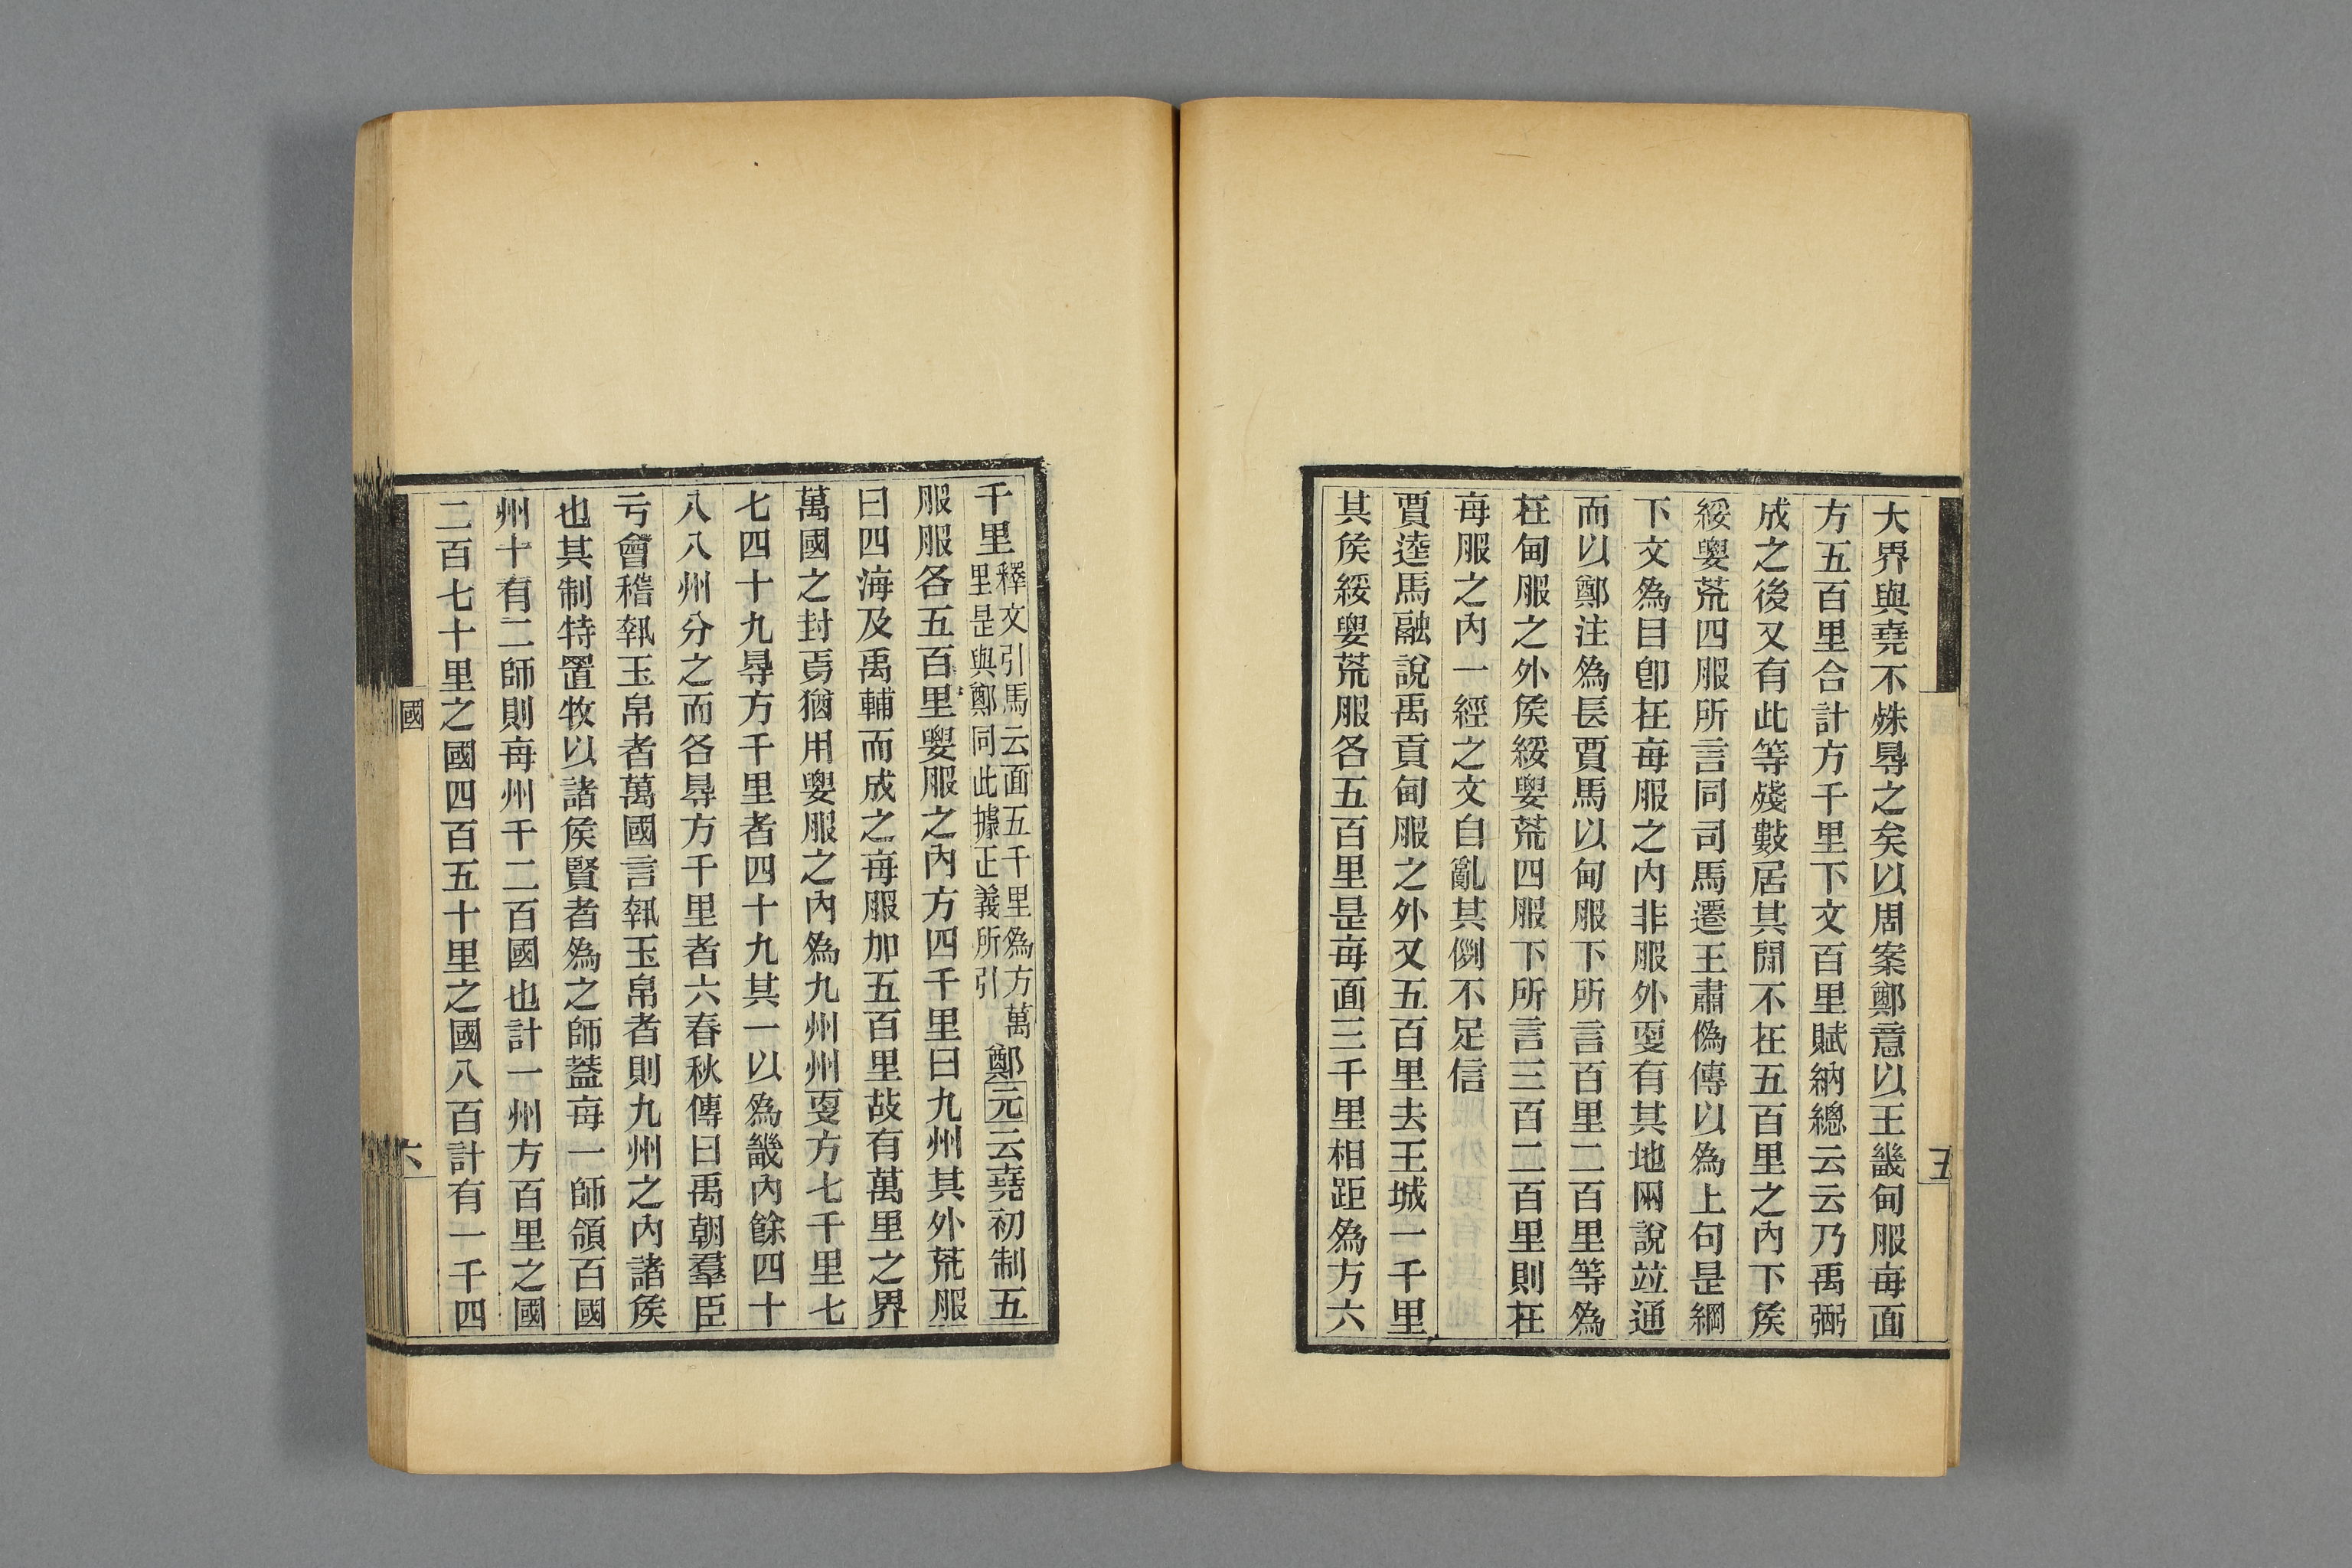 大界與堯不殊㝵之矣以周案鄭意以王畿甸服每面
方五百里合計方千里下文百里賦納總云云乃禹弼
成之後又有此等殘數居其閒不在五百里之內下矦
綏㚻荒四服所言同司馬遷王肅僞傳以爲上句是綱
下文爲目卽在每服之內非服外更有其地兩說竝通
而以鄭注爲長賈馬以甸服下所言百里二百里等爲
在甸服之外矦綏㚻荒四服下所言三百二百里則在
每服之內一經之文自亂其例不足信
賈逵馬融說禹貢甸服之外又五百里去王城一千里
其矦綏㚻荒服各五百里是每面三千里相距爲方六
五
千里釋文引馬云面五千里爲方萬
里是與鄭同此據正義所引
鄭元云堯初制五
服服各五百里㚻服之內方四千里曰九州其外荒服
曰四海及禹輔而成之每服加五百里故有萬里之界
萬國之封焉猶用㚻服之內爲九州州更方七千里七
七四十九㝵方千里者四十九其一以爲畿內餘四十
八八州分之而各㝵方千里者六春秋傳曰禹朝羣臣
亏會稽執玉帛者萬國言執玉帛者則九州之內諸矦
也其制特置牧以諸矦賢者爲之師蓋每一師領百國
州十有二師則每州千二百國也計一州方百里之國
二百七十里之國四百五十里之國八百計有一千四
國
六